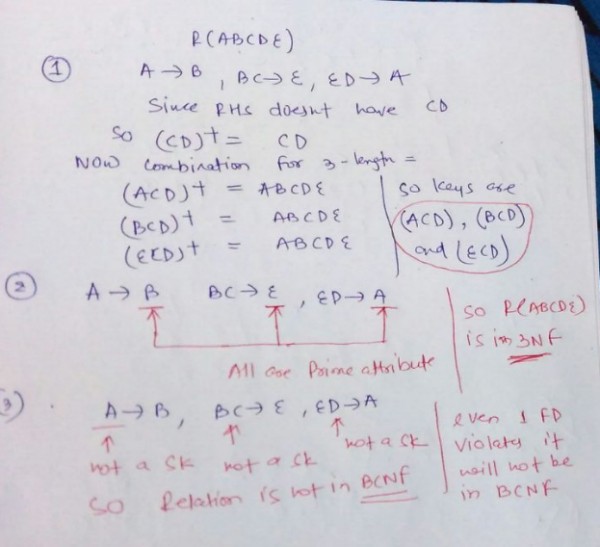 R(ABCDE)
① A → B , BC → E, ED → A
Since RHS doesnt have CD
So (CD)+ = CD
Now Combination for 3-length =
(ACD)+ = ABCDE
(BCD)+ = ABCDE
(ECD)+ = ABCDE
So keys are
(ACD), (BCD)
and (ECD)
② A → B BC → E , ED → A
All are Prime attribute
So R(ABCDE)
is in 3NF
3) A → B, BC → E , ED → A
not a SK not a SK not a SK
So Relation is not in BCNF
even 1 FD
violats it
will not be
in BCNF